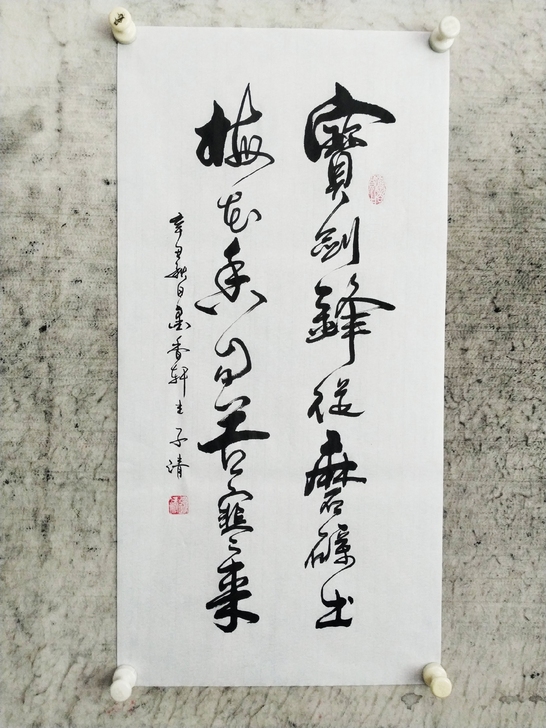 寶劍鋒從磨礪出
梅花香自苦寒来
辛丑秋日墨香軒主子清